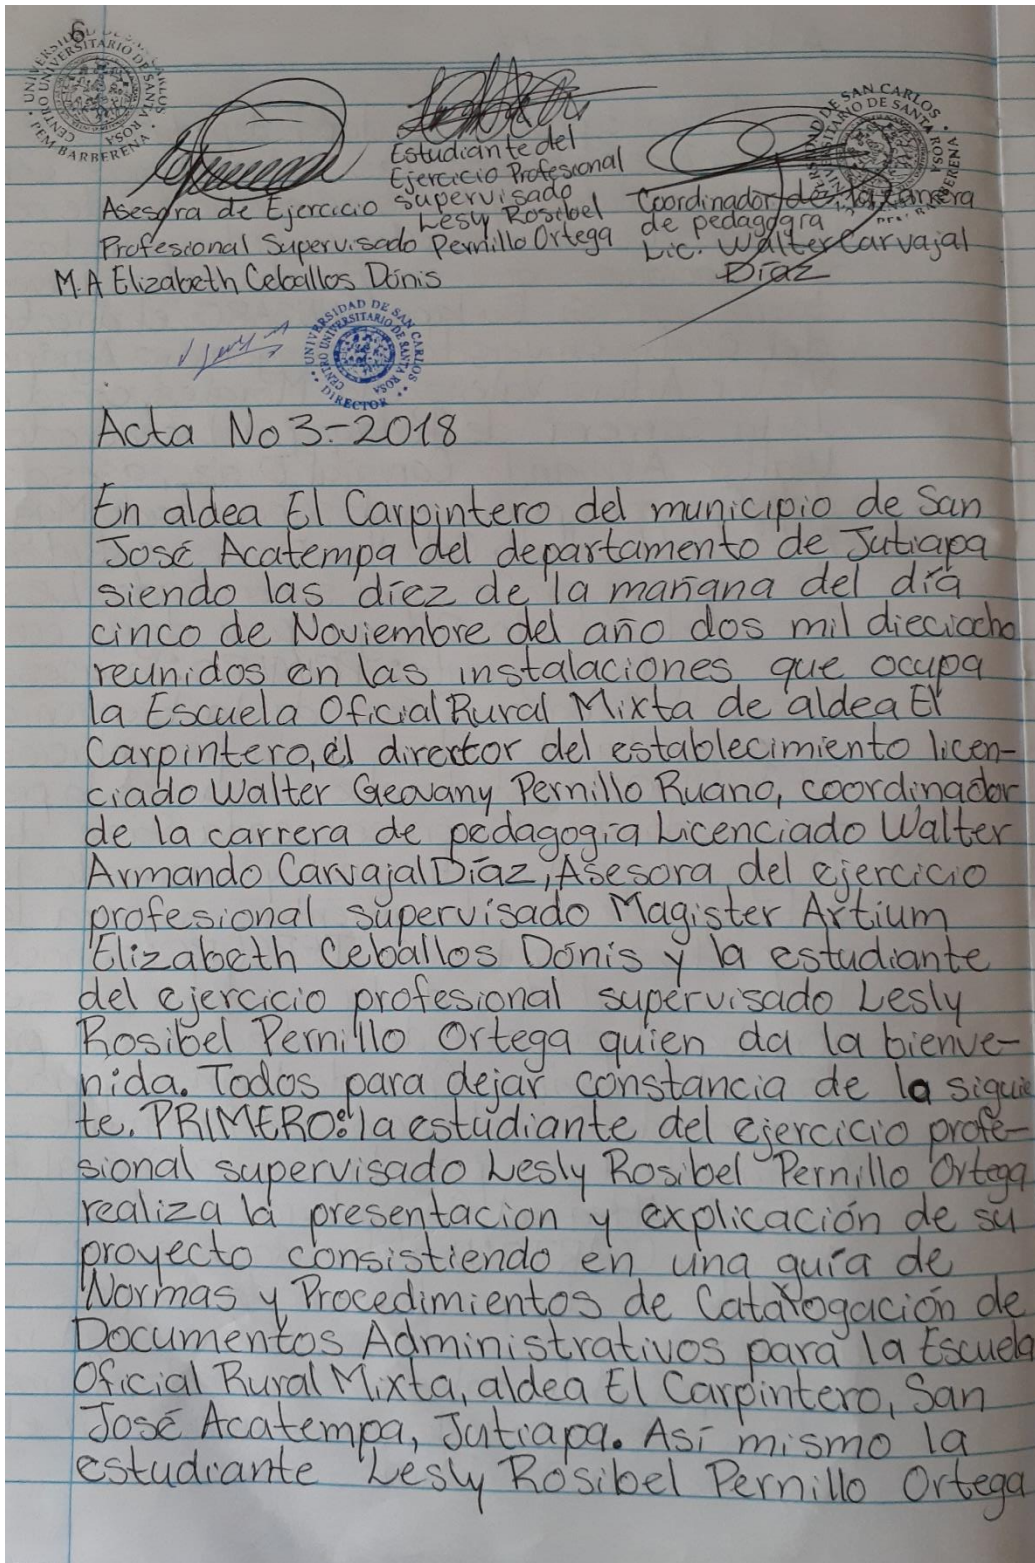 6
UNIVERSIDAD DE SAN CARLOS
CENTRO UNIVERSITARIO DE SANTA ROSA
PEM BARBERENA
UNIVERSIDAD DE SAN CARLOS
UNIVERSITARIO DE SANTA ROSA
BARBERENA
Estudiante del
Ejercicio Profesional
supervisado
Lesly Rosibel
Pernillo Ortega
Asesora de Ejercicio
Profesional Supervisado
M.A Elizabeth Ceballos Dónis
Coordinador de la Carrera
de pedagogía
Lic. Walter Carvajal
Díaz
UNIVERSIDAD DE SAN CARLOS
CENTRO UNIVERSITARIO DE SANTA ROSA
DIRECTOR
Acta No 3-2018
En aldea El Carpintero del municipio de San
José Acatempa del departamento de Jutiapa
siendo las díez de la mañana del día
cinco de Noviembre del año dos mil dieciocho
reunidos en las instalaciones que ocupa
la Escuela Oficial Rural Mixta de aldea El
Carpintero, el director del establecimiento licen-
ciado Walter Geovany Pernillo Ruano, coordinador
de la carrera de pedagogía Licenciado Walter
Armando Carvajal Díaz, Asesora del ejercicio
profesional supervisado Magister Artium
Elizabeth Ceballos Donis y la estudiante
del ejercicio profesional supervisado Lesly
Rosibel Pernillo Ortega quien da la bienve-
nida. Todos para dejar constancia de la siguie
te. PRIMERO: la estudiante del ejercicio profe-
sional supervisado Lesly Rosibel Pernillo Ortega
realiza la presentacion y explicación de su
proyecto consistiendo en una guía de
Normas y Procedimientos de Catalogación de
Documentos Administrativos para la Escuela
Oficial Rural Mixta, aldea El Carpintero, San
José Acatempa, Jutiapa. Así mismo la
estudiante Lesly Rosibel Pernillo Ortega